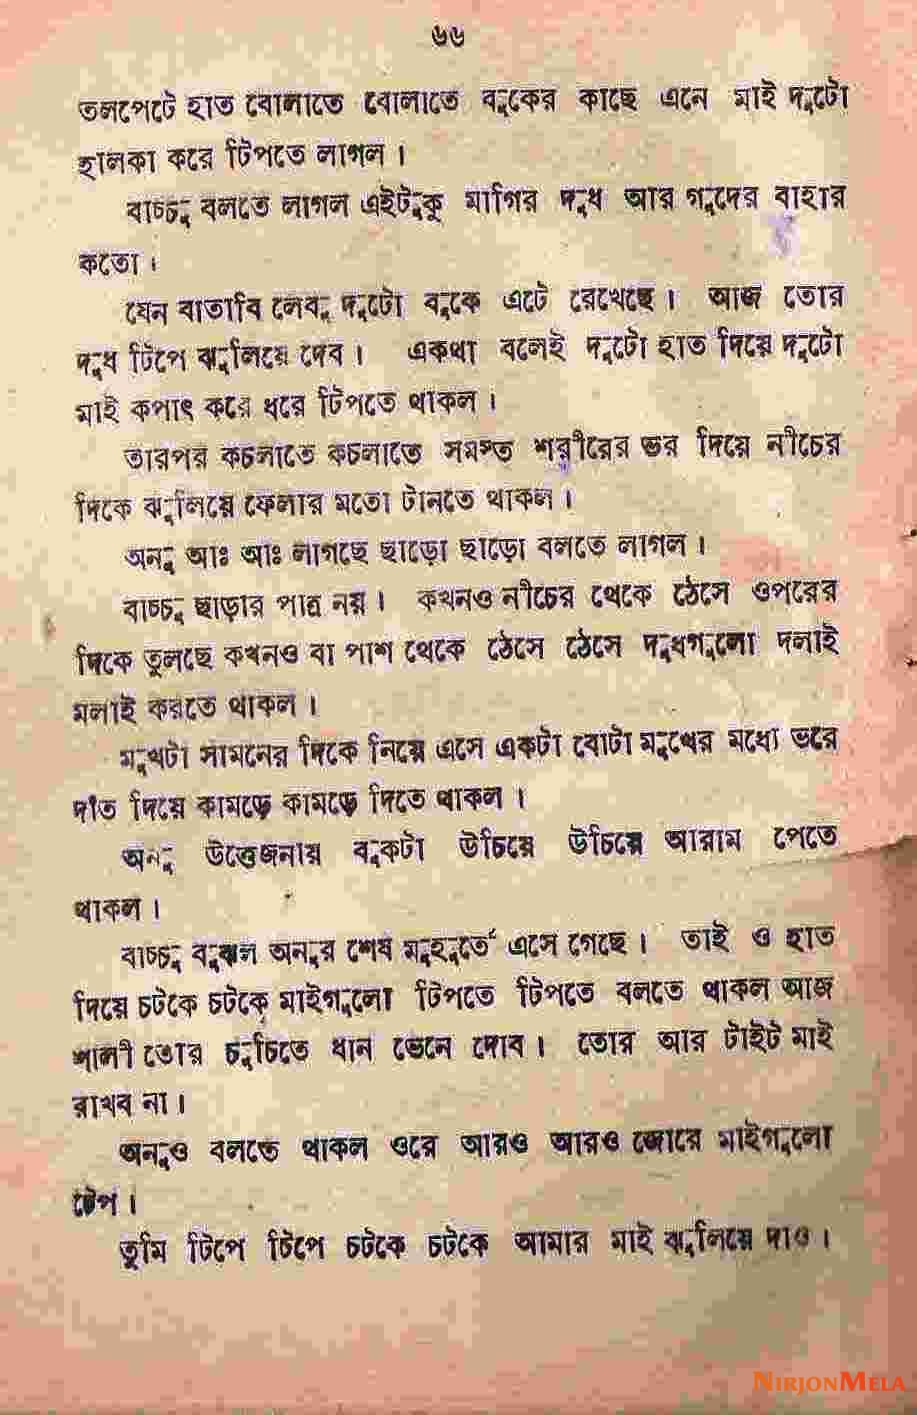 ৬৬
তলপেটে হাত বোলাতে বোলাতে বুকের কাছে এনে মাই দুটো
হালকা করে টিপতে লাগল।
বাচ্চু বলতে লাগল এইটুকু মাগির দুধ আর গুদের বাহার
কতো।
যেন বাতাবি লেবু দুটো বুকে এটে রেখেছে। আজ তোর
দুধ টিপে ঝুলিয়ে দেব। একথা বলেই দুটো হাত দিয়ে দুটো
মাই কপাৎ করে ধরে টিপতে থাকল।
তারপর কচলাতে কচলাতে সমস্ত শরীরের ভর দিয়ে নীচের
দিকে ঝুলিয়ে ফেলার মতো টানতে থাকল।
অনু আঃ আঃ লাগছে ছাড়ো ছাড়ো বলতে লাগল।
বাচ্চু ছাড়ার পাত্র নয়। কখনও নীচের থেকে ঠেসে ওপরের
দিকে তুলছে কখনও বা পাশ থেকে ঠেসে ঠেসে দুধগুলো দলাই
মলাই করতে থাকল।
মুখটা সামনের দিকে নিয়ে এসে একটা বোটা মুখের মধ্যে ভরে
দাঁত দিয়ে কামড়ে কামড়ে দিতে থাকল।
অনু উত্তেজনায় বুকটা উচিয়ে উচিয়ে আরাম পেতে
থাকল।
বাচ্চু বুঝল অনুর শেষ মুহূর্তে এসে গেছে। তাই ও হাত
দিয়ে চটকে চটকে মাইগুলো টিপতে টিপতে বলতে থাকল আজ
শালী তোর চুচিতে ধান ভেনে দোব। তোর আর টাইট মাই
রাখব না।
অনুও বলতে থাকল ওরে আরও আরও জোরে মাইগুলো
টেপ।
তুমি টিপে টিপে চটকে চটকে আমার মাই ঝুলিয়ে দাও।
NIRJONMELA